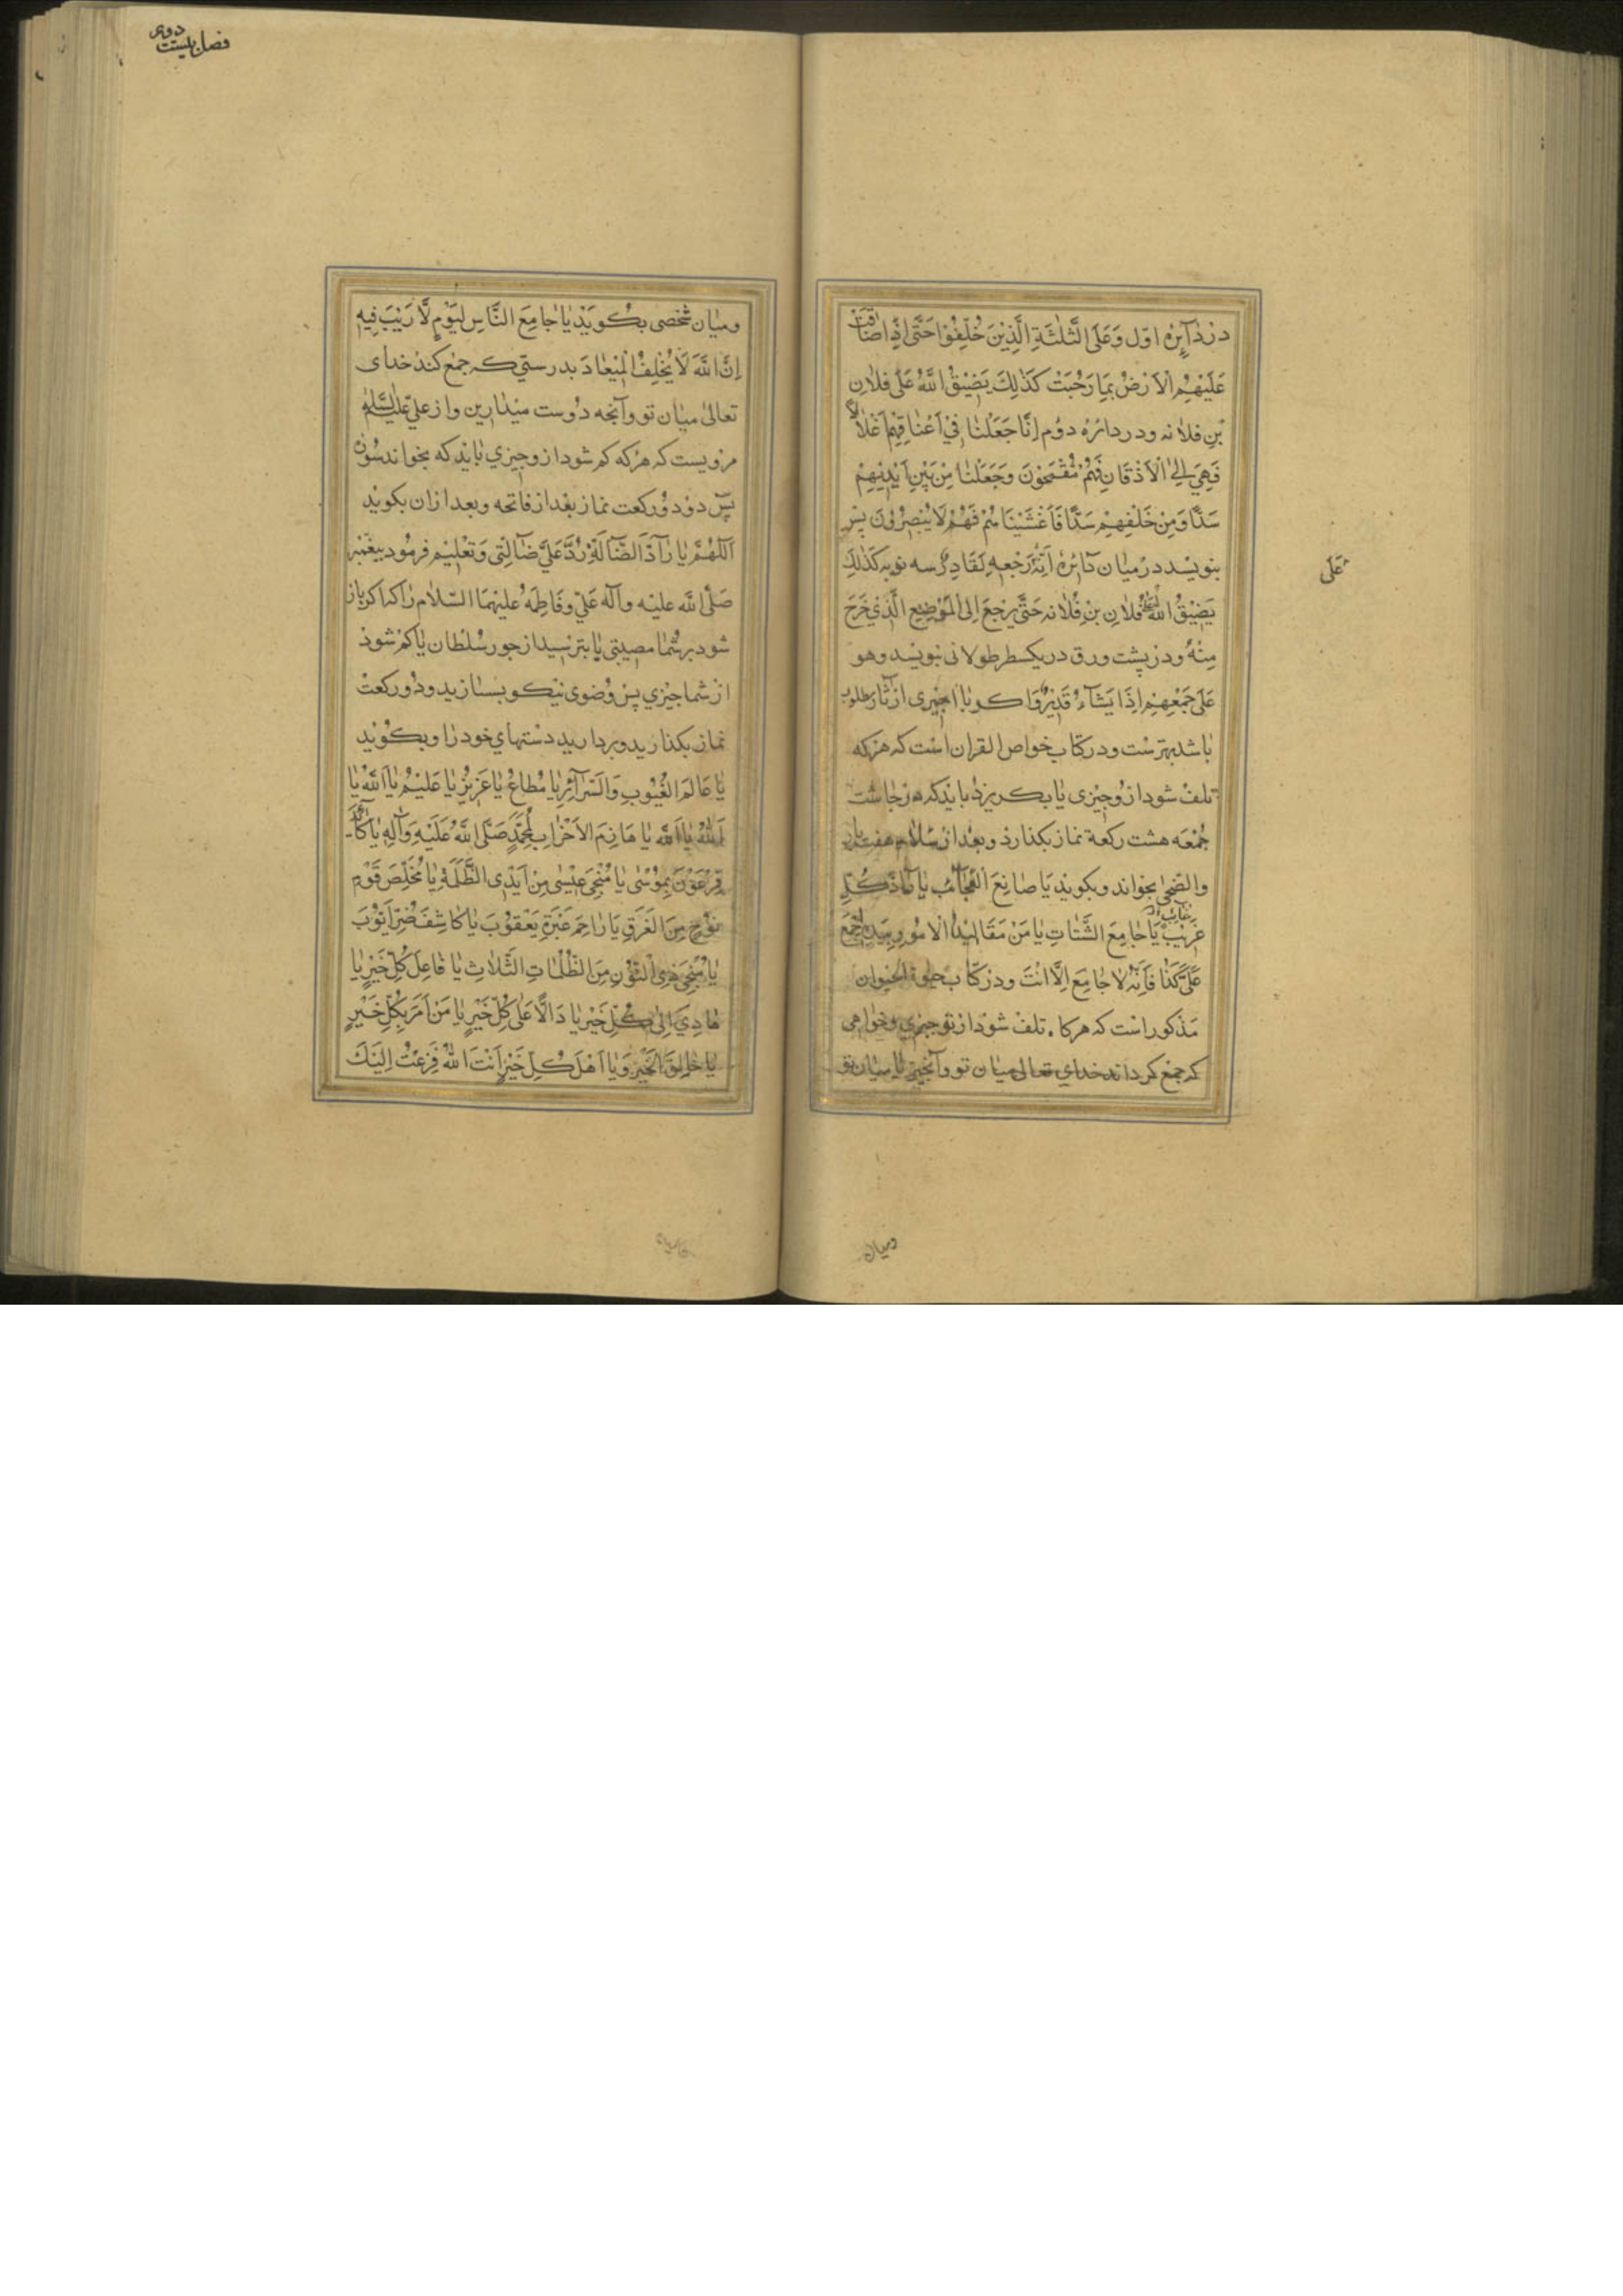 در دآیره اوّل وَعَلَى الثَّلٰثَةِ الَّذِيْنَ خُلِّفُوْا حَتّٰى اِذَا ضَاقَتْ
عَلَيْهِمُ الْاَرْضُ بِمَا رَحُبَتْ كَذٰلِكَ يَضِيْقُ اللّٰهُ عَلٰى فُلَانِ
بْنِ فلانه ودر دائره دوُم اِنَّا جَعَلْنَا فِيْ اَعْنَاقِهِمْ اَغْلَالًا
فَهِيَ اِلَى الْاَذْقَانِ فَهُمْ مُقْمَحُوْنَ وَجَعَلْنَا مِنْ بَيْنِ اَيْدِيْهِمْ
سَدًّا وَمِنْ خَلْفِهِمْ سَدًّا فَاَغْشَيْنَاهُمْ فَهُمْ لَا يُبْصِرُوْنَ پس
بنویسد در میان دائره اِنَّهُ عَلٰى رَجْعِهِ لَقَادِرٌ سه نوبه كَذٰلِكَ
يَضِيْقُ اللّٰهُ عَلٰى فُلَانِ بْنِ فُلَانه حَتّٰى يَرْجِعَ اِلَى الْمَوْضِعِ الَّذِيْ خَرَجَ
مِنْهُ ودر پشت ورق در یکسطر طولانی بنویسد وهو
عَلٰى جَمْعِهِمْ اِذَا يَشَآءُ قَدِيْرٌ واکر با چیزی از آثار مطلوب
باشد بهترست ودر کتاب خواص القران است که هر که
تلف شود ازو چیزی یا بکریزد باید که در چاشت
جُمْعَه هشت رکعة نماز بکذارد وبعد از سلام هفت بار
والضحی بخواند وبکوید يَا صَانِعَ الْعَجَآئِبِ يَا رَآدَّ كُلِّ
غَائِبٍ
غَرِيْبٍ يَا جَامِعَ الشَّتَاتِ يَا مَنْ مَقَالِيْدُ الْاُمُوْرِ بِيَدِهِ اِجْمَعْ
عَلَيَّ كَذَا فَاِنَّهُ لَا جَامِعَ اِلَّا اَنْتَ ودر کتاب حیوة الحیوان
مذکور است که هرکاه تلف شود از تو چیزی وخواهی
که جمع کرداند خدای تعالی میان تو وآنچیز یا میان تو
عَلٰى
ومیان
فصل بیست دوم
ومیان شخصی بکوید يَا جَامِعَ النَّاسِ لِيَوْمٍ لَّا رَيْبَ فِيْهِ
اِنَّ اللّٰهَ لَا يُخْلِفُ الْمِيْعَادَ بدرستی که جمع کند خدای
تعالی میان تو وآنچه دوست میدارین واز علیّ علیه السّلم
مرویست که هرکه کم شود ازو چیزی باید که بخواند سوره
یس در دو رکعت نماز بعد از فاتحه وبعد ازان بکوید
اَللّٰهُمَّ يَا رَآدَّ الضَّآلَّةِ رُدَّ عَلَيَّ ضَآلَّتِيْ وتعلیم فرمود پیغمبر
صَلَّى اللّٰه علیه وآله عَلیّ وفاطمه علیهما السّلام را که اکر باز
شود بر شُما مصیبتی یا بترسید از جور سُلطان یا کم شود
از شما چیزی پس وضوی نیکو بسازید ودو رکعت
نماز بکذارید وبردارید دستهای خود را وبکوئید
يَا عَالِمَ الْغُيُوْبِ وَالسَّرَآئِرِ يَا مُطَاعُ يَا عَزِيْزُ يَا عَلِيْمُ يَا اَللّٰهُ يَا
اَللّٰهُ يَا اَللّٰهُ يَا هَازِمَ الْاَحْزَابِ لِمُحَمَّدٍ صَلَّى اللّٰهُ عَلَيْهِ وَآلِهِ يَا كَآئِدَ
فِرْعَوْنَ بِمُوْسٰى يَا مُنْجِيَ عِيْسٰى مِنْ اَيْدِى الظَّلَمَةِ يَا مُخَلِّصَ قَوْمِ
نُوْحٍ مِنَ الْغَرَقِ يَا رَاحِمَ عَبْرَةِ يَعْقُوْبَ يَا كَاشِفَ ضُرِّ اَيُّوْبَ
يَا مُنْجِيَ ذِى النُّوْنِ مِنَ الظُّلُمَاتِ الثَّلَاثِ يَا فَاعِلَ كُلِّ خَيْرٍ يَا
هَادِيَ اِلٰى كُلِّ خَيْرٍ يَا دَالًّا عَلٰى كُلِّ خَيْرٍ يَا مَنْ اَمَرَ بِكُلِّ خَيْرٍ
يَا خَالِقَ الْخَيْرِ وَيَا اَهْلَ كُلِّ خَيْرٍ اَنْتَ اللّٰهُ فَزِعْتُ اِلَيْكَ